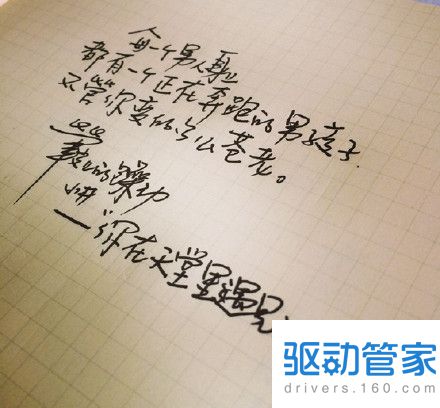 每一个男人
都有一个正在奔跑的男孩子
不管你变的多么苍老。
的躁动
—你在天堂里遇见
驱动管家
drivers.160.com